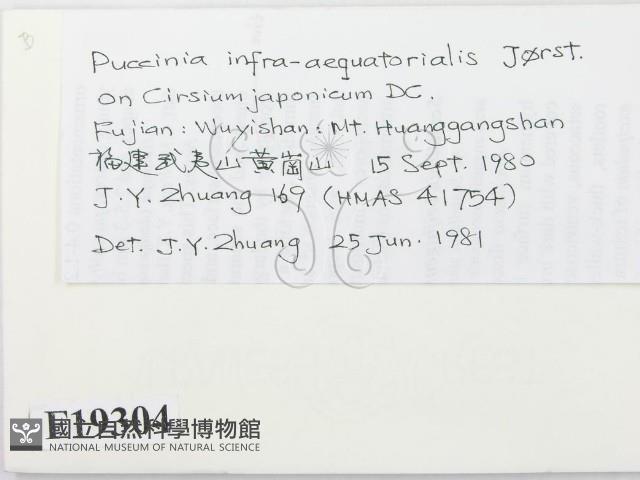 Puccinia infra-aequatorialis Jørst.
on Cirsium japonicum DC.
Fujian: Wuyishan: Mt. Huanggangshan
福建武夷山黄崗山 15 Sept. 1980
J.Y. Zhuang 169 (HMAS 41754)
Det. J.Y. Zhuang 25 Jun. 1981
F19304
國立自然科學博物館
NATIONAL MUSEUM OF NATURAL SCIENCE